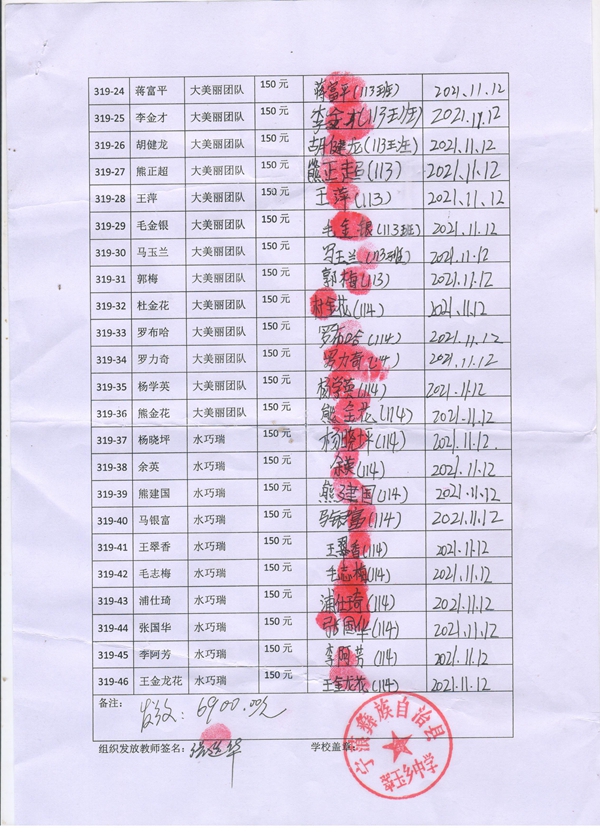 319-24 蒋富平 大美丽团队 150 元 蒋富平(113班) 2021.11.12
319-25 李金才 大美丽团队 150 元 李金才(113班) 2021.11.12
319-26 胡健龙 大美丽团队 150 元 胡健龙(113班) 2021.11.12
319-27 熊正超 大美丽团队 150 元 熊正超(113) 2021.11.12
319-28 王萍 大美丽团队 150 元 王萍(113) 2021.11.12
319-29 毛金银 大美丽团队 150 元 毛金银(113班) 2021.11.12
319-30 马玉兰 大美丽团队 150 元 马玉兰(113班) 2021.11.12
319-31 郭梅 大美丽团队 150 元 郭梅(113) 2021.11.12
319-32 杜金花 大美丽团队 150 元 杜金花(114) 2021.11.12
319-33 罗布哈 大美丽团队 150 元 罗布哈(114) 2021.11.12
319-34 罗力奇 大美丽团队 150 元 罗力奇(114) 2021.11.12
319-35 杨学英 大美丽团队 150 元 杨学英(114) 2021.11.12
319-36 熊金花 大美丽团队 150 元 熊金花(114) 2021.11.12
319-37 杨晓坪 水巧瑞 150 元 杨晓坪(114) 2021.11.12
319-38 余英 水巧瑞 150 元 余英(114) 2021.11.12
319-39 熊建国 水巧瑞 150 元 熊建国(114) 2021.11.12
319-40 马银富 水巧瑞 150 元 马银富(114) 2021.11.12
319-41 王翠香 水巧瑞 150 元 王翠香(114) 2021.11.12
319-42 毛志梅 水巧瑞 150 元 毛志梅(114) 2021.11.12
319-43 浦仕琦 水巧瑞 150 元 浦仕琦(114) 2021.11.12
319-44 张国华 水巧瑞 150 元 张国华(114) 2021.11.12
319-45 李阿芳 水巧瑞 150 元 李阿芳(114) 2021.11.12
319-46 王金龙花 水巧瑞 150 元 王金龙花(114) 2021.11.12
备注: 6900.00元
组织发放教师签名: 学校盖章:
宁蒗彝族自治县